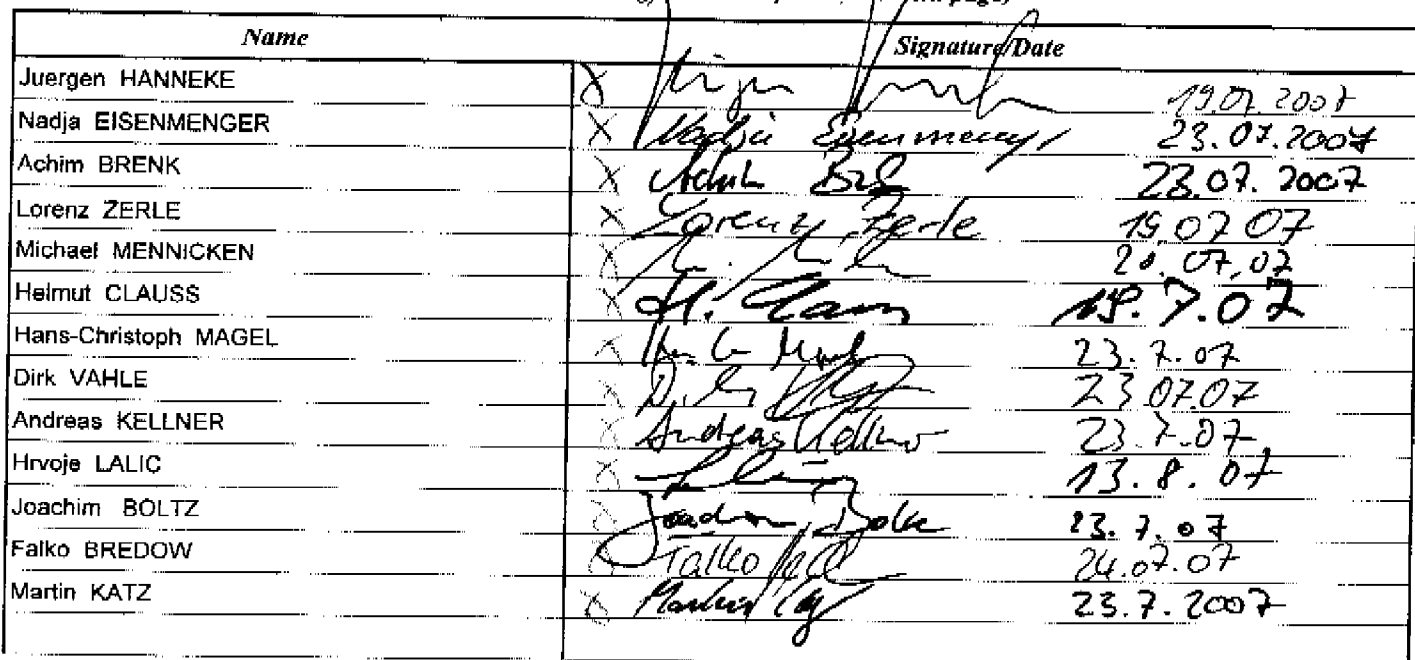 page)
Name Signature/Date
Juergen HANNEKE X 19.07.2007
Nadja EISENMENGER X Nadja Eisenmenger 23.07.2007
Achim BRENK X Achim 23.07.2007
Lorenz ZERLE X Lorenz Zerle 19.07.07
Michael MENNICKEN X 20.07.07
Helmut CLAUSS X H. Clauss .7.07
Hans-Christoph MAGEL X 23.7.07
Dirk VAHLE X 23.07.07
Andreas KELLNER X Andreas Kellner 23.7.07
Hrvoje LALIC X 13.8.07
Joachim BOLTZ X Joachim Boltz 23.7.07
Falko BREDOW X Falko 24.07.07
Martin KATZ X Martin Katz 23.7.2007